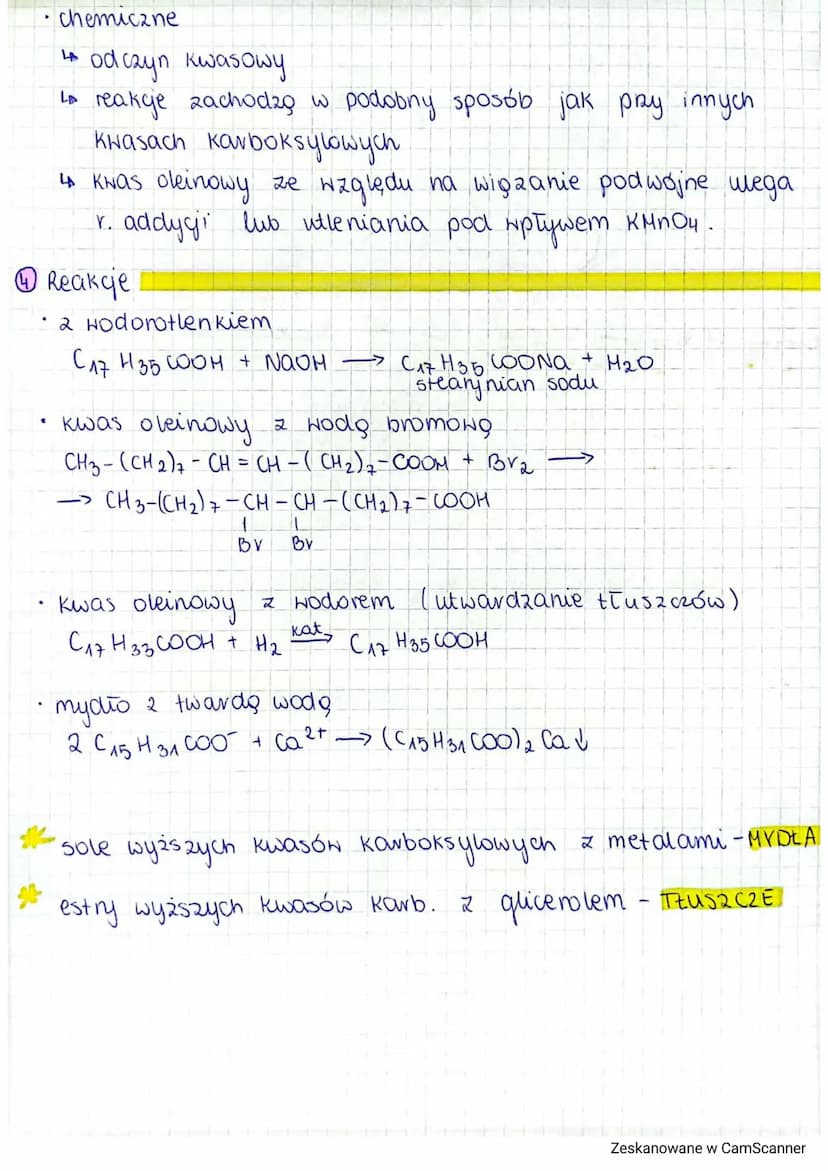 · chemiczne
↳ odczyn kwasowy
↳ reakcje zachodzą w podobny sposób jak przy innych
kwasach karboksylowych
↳ kwas oleinowy ze względu na wiązanie podwójne ulega
r. addycji lub utleniania pod wpływem KMnO₄.
④ Reakcje
· z wodorotlenkiem
C₁₇H₃₅COOH + NaOH ⟶ C₁₇H₃₅COONa + H₂O
stearynian sodu
· kwas oleinowy z wodą bromową
CH₃-(CH₂)₇-CH=CH-(CH₂)₇-COOH + Br₂ ⟶
⟶ CH₃-(CH₂)₇-CH-CH-(CH₂)₇-COOH
| |
Br Br
· kwas oleinowy z wodorem (utwardzanie tłuszczów)
C₁₇H₃₃COOH + H₂ kat.⟶ C₁₇H₃₅COOH
· mydło z twardą wodą
2 C₁₅H₃₁COO⁻ + Ca²⁺ ⟶ (C₁₅H₃₁COO)₂Ca↓
* sole wyższych kwasów karboksylowych z metalami - MYDŁA
* estry wyższych kwasów karb. z glicerolem - TŁUSZCZE
Zeskanowane w CamScanner